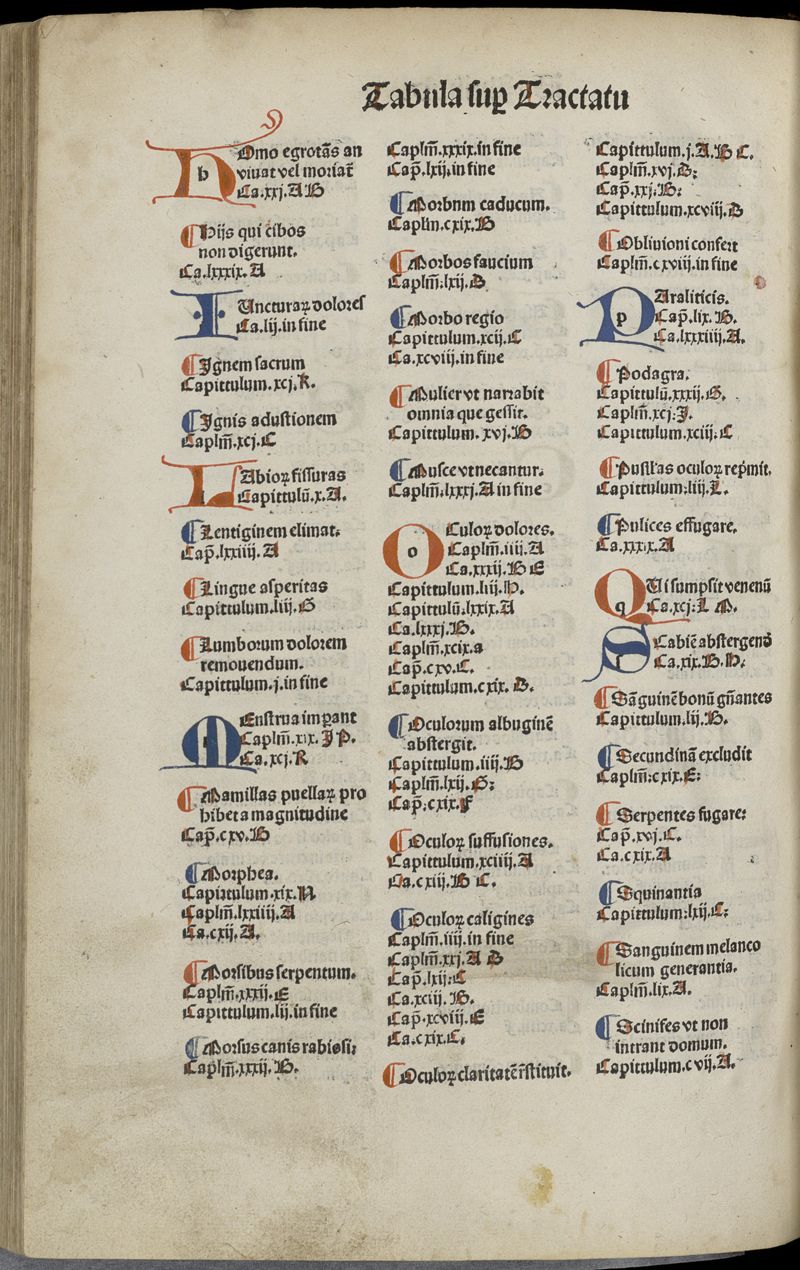 Tabula sup̱ Tractatu
HOmo egrotãs an
viuat vel moriat̃
Ca.xxj.A B
¶ Hijs qui cibos
non digerunt.
Ca.lxxxix.A
IUncturaꝝ dolores
Ca.lij.in fine
¶ Ignem sacrum
Capittulum.xcj.K.
¶ Ignis adustionem
Caplm̃.xcj.C
LAbioꝝ fissuras
Capittulũ.x.A.
¶ Lentiginem elimat.
Cap̃.lxxiiij.A
¶ Lingue asperitas
Capittulum.liij.G
¶ Lumborum dolorem
remouendum.
Capittulum.j.in fine
MEnstrua imꝑant
Caplm̃.xix.I P.
Ca.xcj.K
¶ Mamillas puellaꝝ pro
hibet a magnitudine
Cap̃.cxv.B
¶ Morphea.
Capittulum.xix.N
Caplm̃.lxxiiij.A
Ca.cxij.A.
¶ Morsibus serpentum.
Caplm̃.xxxij.E
Capittulum.lij.in fine
¶ Morsus canis rabiosi:
Caplm̃.xxxij.B.
Caplm̃.xxxix.in fine
Cap̃.lxij.in fine
¶ Morbnm caducum.
Caplm.cxix.B
¶ Morbos faucium
Caplm̃.lxij.D
¶ Morbo regio
Capittulum.xcij.C
Ca.xcviij.in fine
¶ Mulier vt narrabit
omnia que gessit.
Capittulum.xvj.B
¶ Musce vt necantur.
Caplm̃.lxxxj.A in fine
OCuloꝝ dolores.
Caplm̃.iiij.A
Ca.xxxij.B E
Capittulum.liij.H.
Capittulũ.lxxix.A
Ca.lxxxj.B.
Caplm̃.xcix.a
Cap̃.cxv.C.
Capittulum.cxix.D.
¶ Oculorum albuginẽ
abstergit.
Capittulum.iiij.B
Caplm̃.lxij.G:
Cap̃.cxix.F
¶ Oculoꝝ suffusiones.
Capittulum.xciiij.A
Ca.cxiij.B C.
¶ Oculoꝝ caligines
Caplm̃.iiij.in fine
Caplm̃.xxj.A D
Cap̃.lxij:C
Ca.xciij.B.
Cap̃.xcviij.E
Ca.cxix.C.
¶ Oculoꝝ claritatẽ r̃stituit.
Capittulum.j.A.B C.
Caplm̃.xvj.D:
Cap̃.xxj.B:
Capittulum.xcviij.D
¶ Obliuioni confert
Caplm̃.cxviij.in fine
PAraliticis.
Cap̃.lix.B.
Ca.lxxxiiij.A.
¶ Podagra.
Capittulũ.xxxij.G.
Caplm̃.xcj:I.
Capittulum.xciij:C
¶ Pustl'as oculoꝝ rep̃mit.
Capittulum.liij.L.
¶ Pulices effugare.
Ca.xxxix.A
QUi sumpsit venenũ
Ca.xcj:L M.
SCabiẽ abstergendo
Ca.xix.B.H:
¶ Sãguinẽ bonũ gñantes
Capittulum.lij.B.
¶ Secundinã excludit
Caplm̃:cxix.E:
¶ Serpentes fugare:
Cap̃.xvj.C.
Ca.cxix.A
¶ Squinantia
Capittulum:lxij.C:
¶ Sanguinem melanco
licum generantia.
Caplm̃.lix.A.
¶ Scinifes vt non
intrant domum.
Capittulum.cvij.A.